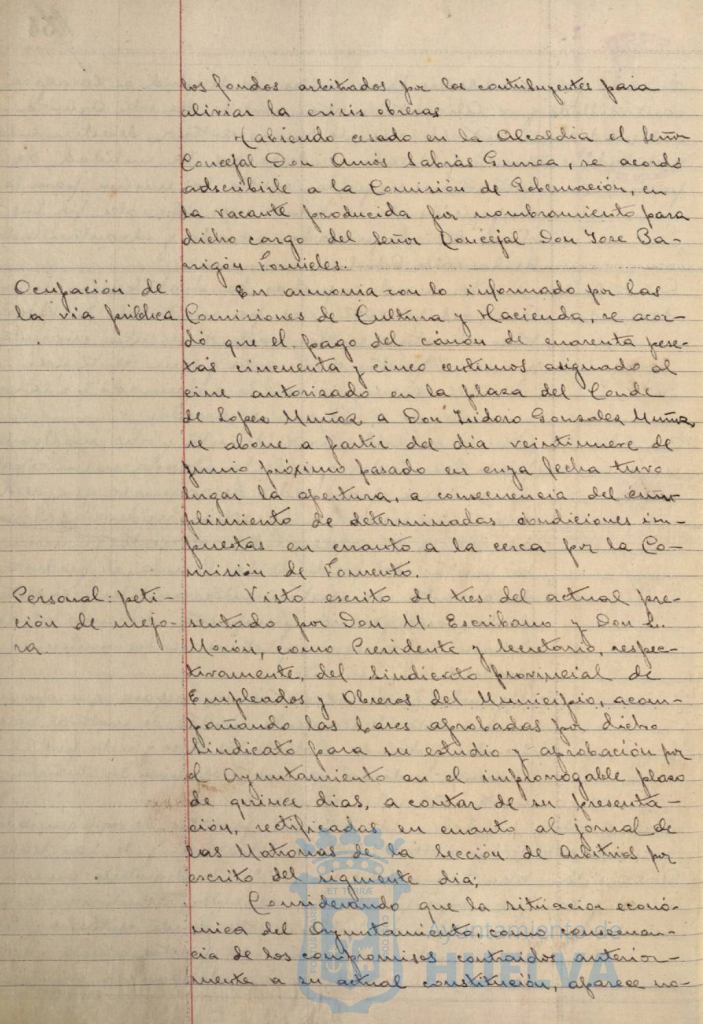 los fondos arbitrados por los contribuyentes para
aliviar la crisis obrera
Habiendo cesado en la Alcaldia el Señor
Concejal Don Amós Sabrás Gurrea, se acordó
adscribirle a la Comisión de Gobernación, en
la vacante producida por nombramiento para
dicho cargo del Señor Concejal Don Jose Ba-
rrigón Fornieles.
Ocupación de
la via pública
En armonia con lo informado por las
Comisiones de Cultura y Hacienda, se acor-
dó que el pago del cánon de cuarenta pese-
tas cincuenta y cinco centimos asignado al
cine autorizado en la plaza del Conde
de Lopez Muñoz a Don Isidoro Gonzalez Muñiz
se abone a partir del dia veintinueve de
junio próximo pasado en cuya fecha tuvo
lugar la apertura, a consecuencia del cum-
plimiento de determinadas condiciones im-
puestas en cuanto a la cerca por la Co-
misión de Fomento.
Personal: peti-
ción de mejo-
ra
Visto escrito de tres del actual pre-
sentado por Don M. Escribano y Don L.
Morón, como Presidente y Secretario, respec-
tivamente, del Sindicato provincial de
Empleados y Obreros del Municipio, acom-
pañando las bases aprobadas por dicho
Sindicato para su estudio y aprobación por
el Ayuntamiento en el improrrogable plazo
de quince dias, a contar de su presenta-
ción, rectificadas en cuanto al jornal de
las Matronas de la Sección de Arbitrios por
escrito del siguiente dia;
Considerando que la situacion econó-
mica del Ayuntamiento, como consecuen-
cia de los compromisos contraidos anterior-
mente a su actual constitución, aparece no-
Ayuntamiento de
HUELVA